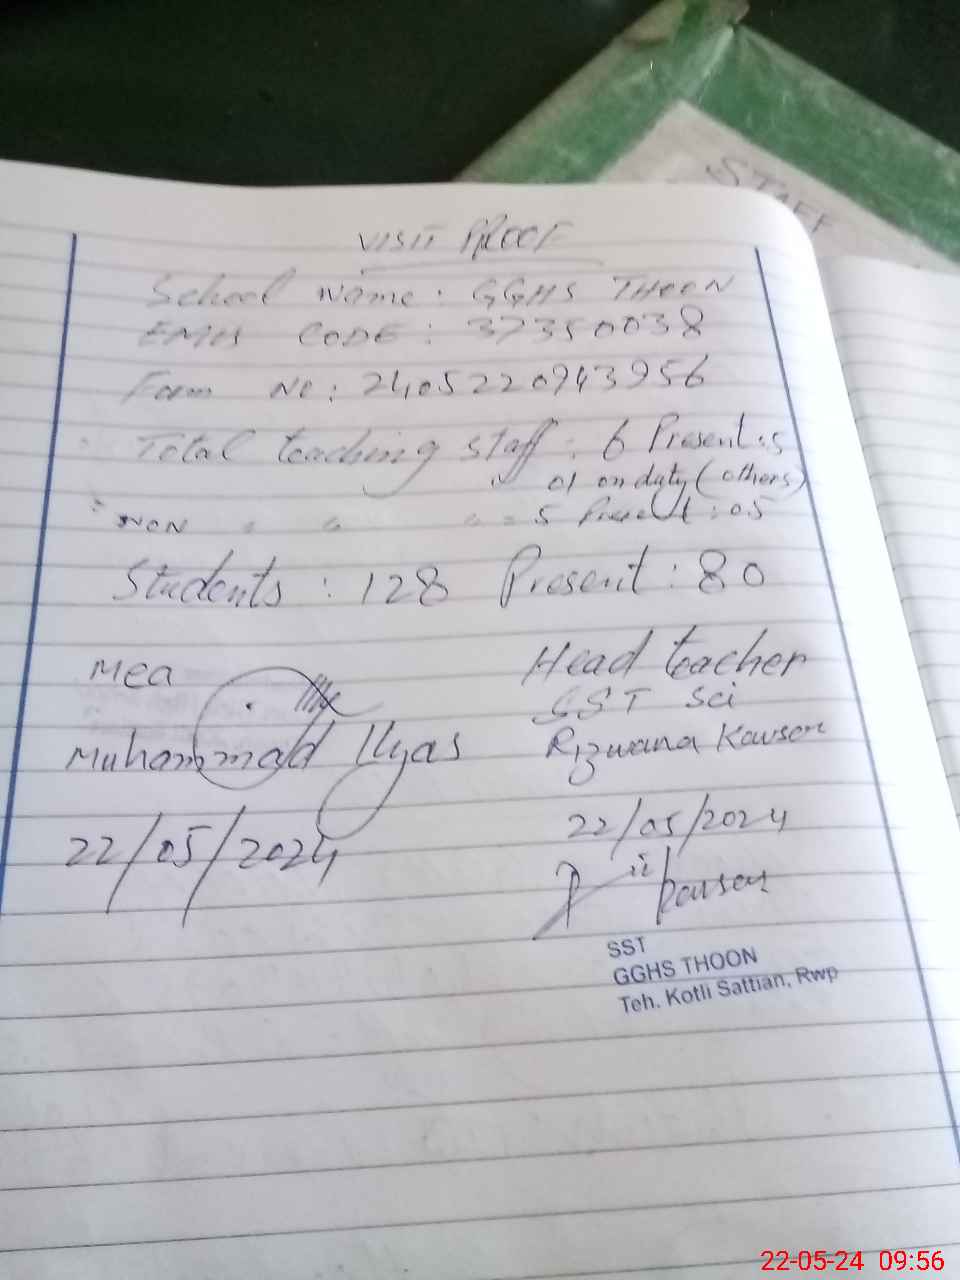 STAFF
VISIT PROOF
School Name: GGHS THOON
EMIS CODE: 37350038
Form No: 2405220943956
Total teaching staff: 6 Present: 5
01 on duty (others)
NON " " " = 5 Present: 05
Students: 128 Present: 80
MEA
Muhammad Ilyas
22/05/2024
Head teacher
SST Sci
Rizwana Kawser
22/05/2024
SST
GGHS THOON
Teh. Kotli Sattian, Rwp
22-05-24 09:56